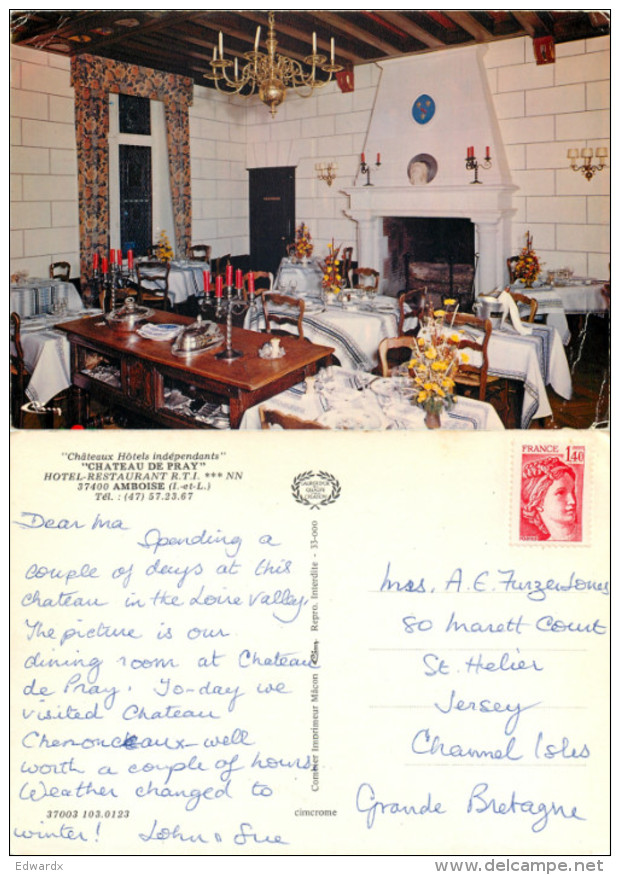 "Châteaux Hôtels indépendants"
"CHATEAU DE PRAY"
HOTEL-RESTAURANT R.T.I. *** NN
37400 AMBOISE (I.-et-L.)
Tél. : (47) 57.23.67
FRANCE
1,40
Dear Ma
Spending a
couple of days at this
chateau in the Loire Valley.
The picture is our
dining room at Chateau
de Pray. To-day we
visited Chateau
Chenonceaux - well
worth a couple of hours.
Weather changed to
winter! John & Sue
37003 103.0123
Combier Imprimeur Mâcon Cim Repro. Interdite - 33-000
cimcrome
Mrs. A. E. Furzer Jones
80 Marett Court
St. Helier
Jersey
Channel Isles
Grande Bretagne
Edwardx
www.delcampe.net